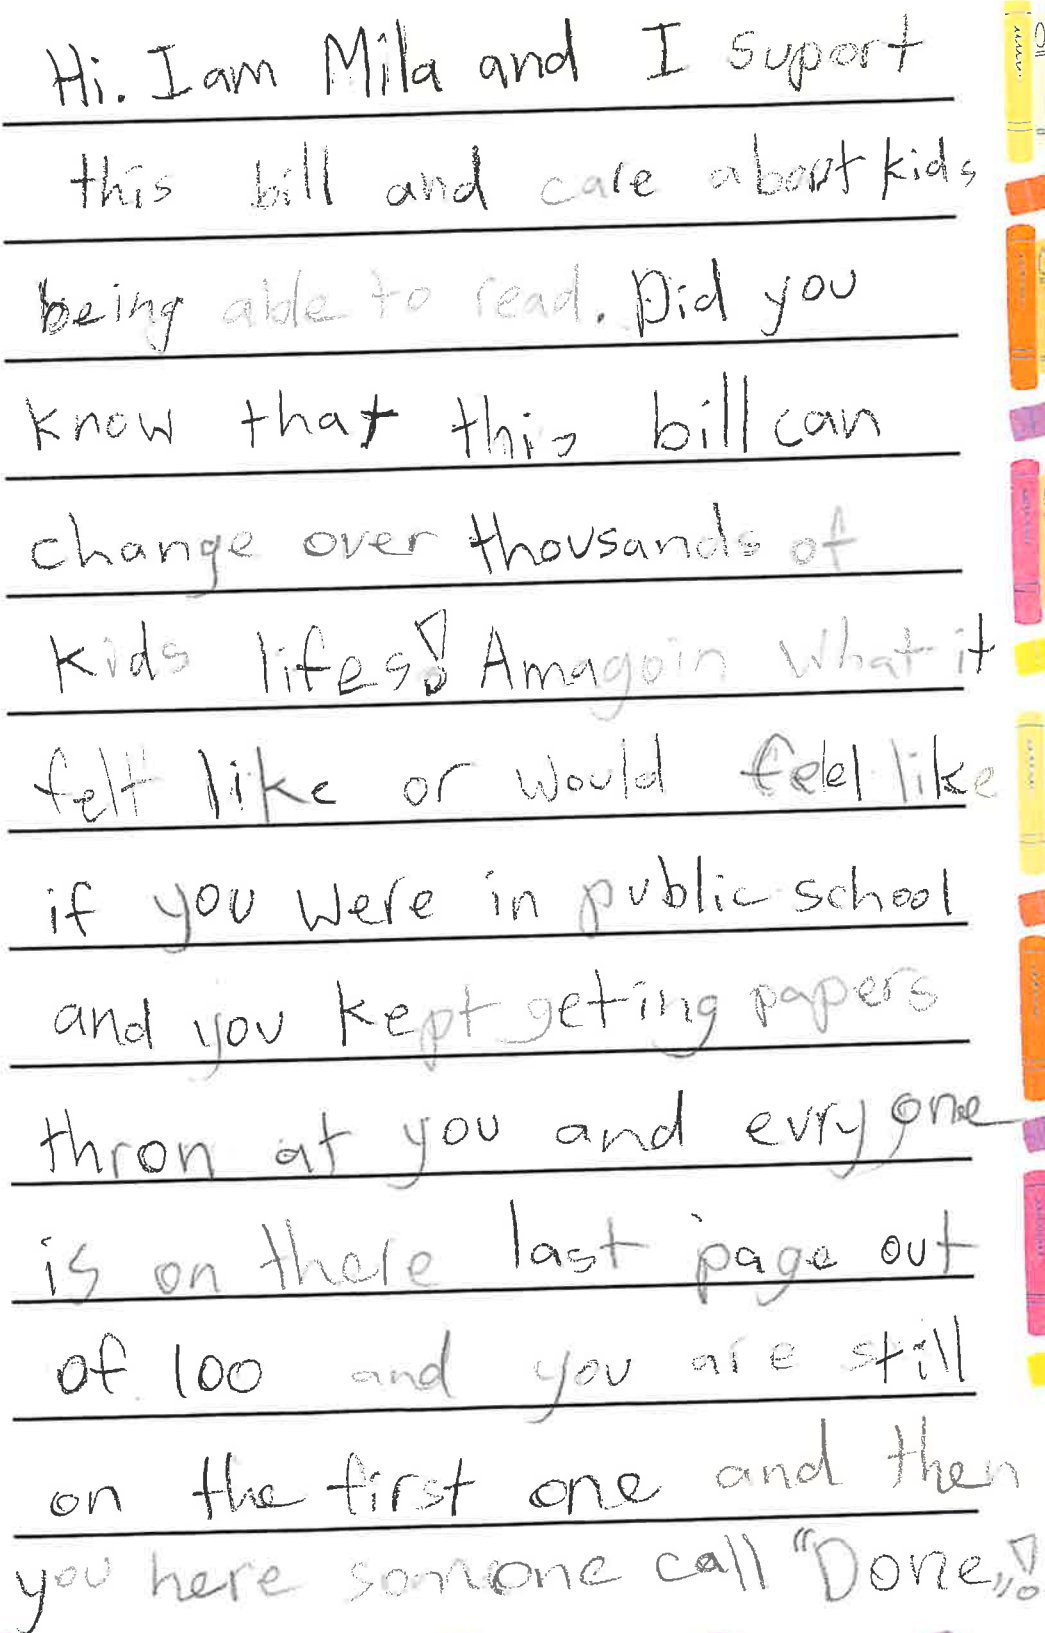 Hi. I am Mila and I suport
this bill and care about kids
being able to read. Did you
know that this bill can
change over thousands of
kids lifes! Amagoin what it
felt like or would feel like
if you were in public school
and you kept geting papers
thron at you and evryone
is on there last page out
of 100 and you are still
on the first one and then
you here somone call "Done,"!